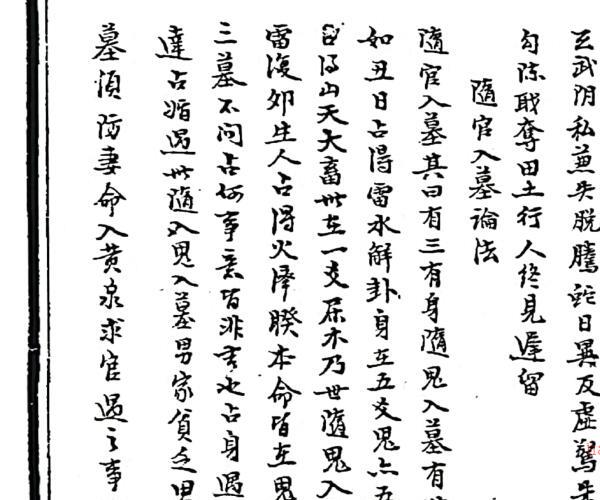 玄武阴私兼失脱騰蛇日異及虚驚朱
勾陈戰奪田土行人终見遲留
隨官入墓論法
隨官入墓其曰有三有身隨鬼入墓有世
如丑日占得雷水解卦身在五爻鬼亦五
日得山天大畜世在一爻屬木乃世隨鬼入
雷復卯生人占得火澤睽本命皆在鬼
三墓不问占何事意皆非吉也占身遇
達占婚遇世隨鬼入墓男家貧乏
墓須防妻命入黄泉求官遇之事